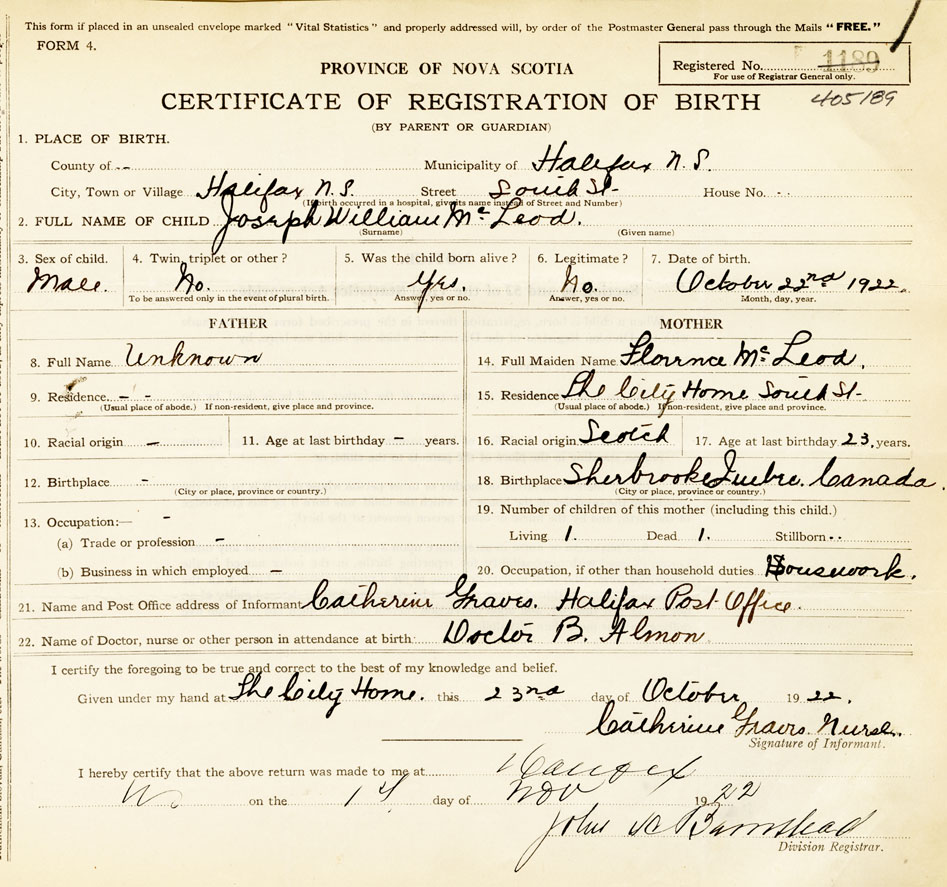 This form if placed in an unsealed envelope marked "Vital Statistics" and properly addressed will, by order of the Postmaster General pass through the Mails "FREE."
FORM 4.
Registered No. 1189
For use of Registrar General only.
PROVINCE OF NOVA SCOTIA
CERTIFICATE OF REGISTRATION OF BIRTH
405189
(BY PARENT OR GUARDIAN)
1. PLACE OF BIRTH.
County of -- Municipality of Halifax N.S.
City, Town or Village Halifax N.S. Street South St- House No. --
(If birth occurred in a hospital, give its name instead of Street and Number)
2. FULL NAME OF CHILD Joseph William Mc Leod.
(Surname) (Given name)
3. Sex of child. 4. Twin, triplet or other? 5. Was the child born alive? 6. Legitimate? 7. Date of birth.
Male. No. Yes. No. October 22nd 1922.
To be answered only in the event of plural birth. Answer, yes or no. Answer, yes or no. Month, day, year.
FATHER MOTHER
8. Full Name Unknown 14. Full Maiden Name Florence Mc Leod.
9. Residence - - 15. Residence The City Home South St-
(Usual place of abode.) If non-resident, give place and province. (Usual place of abode.) If non-resident, give place and province.
10. Racial origin - 11. Age at last birthday - years. 16. Racial origin Scotch 17. Age at last birthday 23, years.
12. Birthplace - 18. Birthplace Sherbrooke Quebec. Canada.
(City or place, province or country.) (City or place, province or country.)
13. Occupation:— - 19. Number of children of this mother (including this child.)
(a) Trade or profession - Living 1. Dead 1. Stillborn --
(b) Business in which employed - 20. Occupation, if other than household duties Housework.
21. Name and Post Office address of Informant Catherine Graves. Halifax Post Office.
22. Name of Doctor, nurse or other person in attendance at birth Doctor B. Almon
I certify the foregoing to be true and correct to the best of my knowledge and belief.
Given under my hand at The City Home. this 23rd day of October 1922.
Catherine Graves. Nurse.
Signature of Informant.
I hereby certify that the above return was made to me at Halifax
on the 14 day of Nov 1922
John Barnstead
Division Registrar.